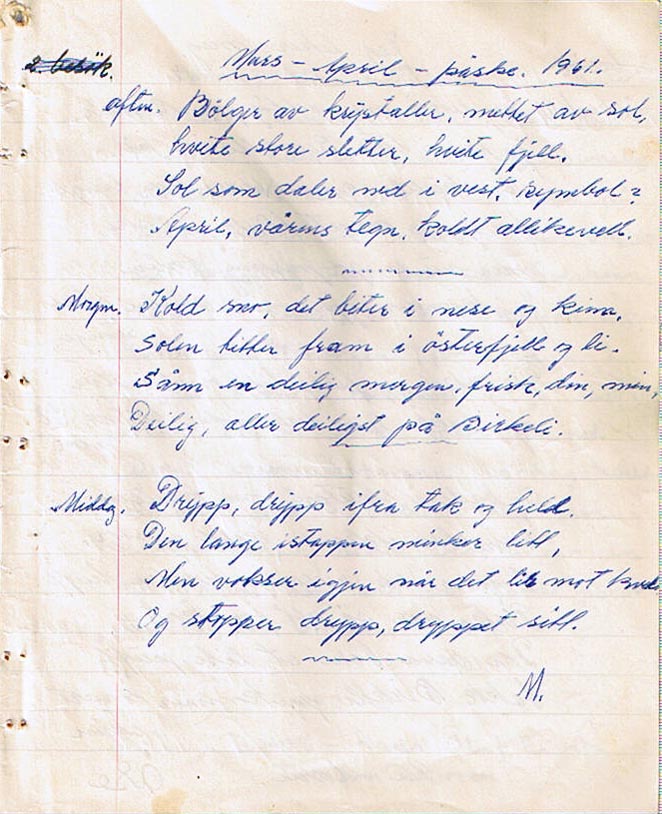 2. besök.
Mars - April - påske. 1961.
aften. Bölger av krystaller, mettet av sol,
hvite store sletter, hvite fjell.
Sol som daler ned i vest. symbol?
April, vårens tegn, koldt allikevell.
Morgen. Kold sno, det biter i nese og kinn,
Solen titter fram i österfjell og li.
Sånn en deilig morgen, frisk, din, min,
Deilig, aller deiligst på Birkeli.
Middag. Drypp, drypp ifra tak og held.
Den lange istappen minker litt,
Men vokser igjen når det lir mot
Og stopper drypp, dryppet sitt.
M.